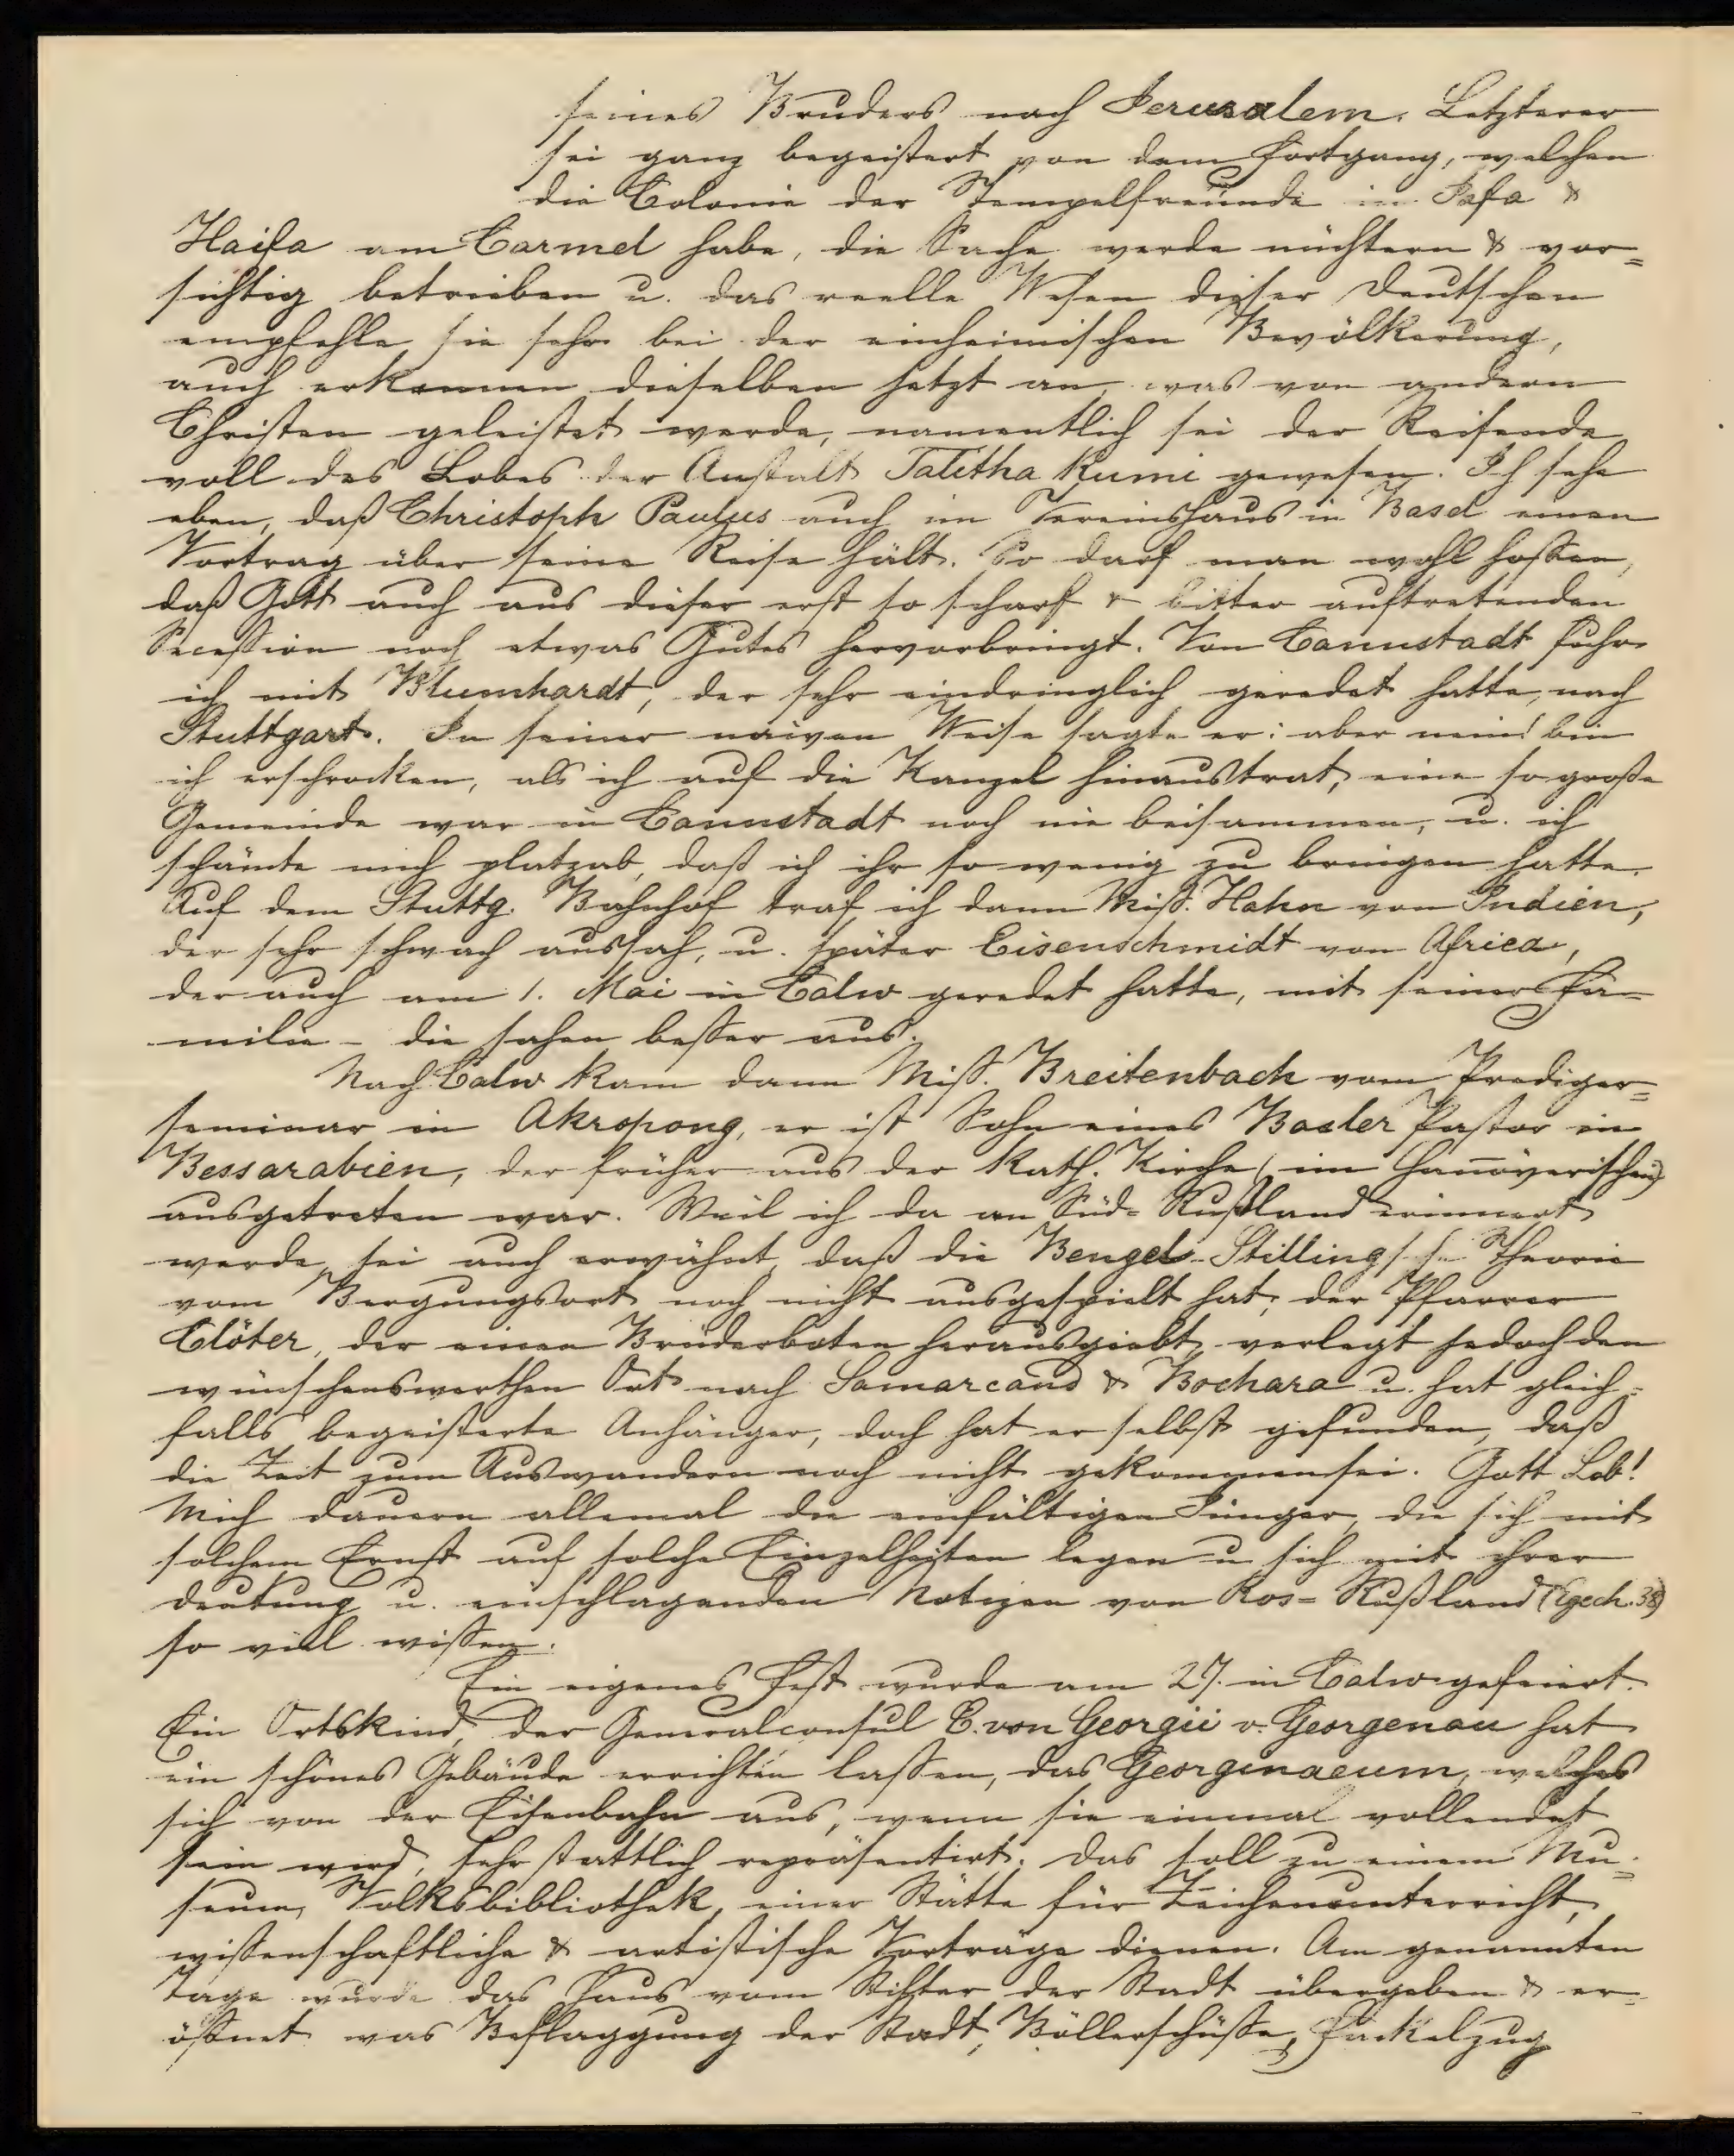 seines Bruders nach Jerusalem. Letzterer
sei ganz begeistert von dem Fortgang, welchen
die Colonie der Tempelfreunde in Jafa &
Haifa am Carmel habe, die Sache werde nüchtern & vor=
sichtig betrieben u. das reelle Wesen dieser Deutschen
empfehle sie sehr bei der einheimischen Bevölkerung,
auch erkennen dieselben jetzt an, was von andern
Christen geleistet werde, namentlich sei der Reisende
voll des Lobes der Anstalt Talitha Kumi gewesen. Ich sehe
eben, daß Christoph Paulus auch im Vereinshaus in Basel einen
Vortrag über seine Reise hält. So darf man wohl hoffen,
daß Gott auch aus dieser erst so scharf & bitter auftretenden
Secession noch etwas Gutes hervorbringt. Von Cannstadt fuhr
ich mit Blumhardt, der sehr eindringlich geredet hatte, nach
Stuttgart. In seiner naiven Weise sagte er: aber nein! bin
ich erschrocken, als ich auf die Kanzel hinaustrat, eine so große
Gemeinde war in Cannstadt noch nie beisammen, u. ich
schämte mich platzab, daß ich ihr so wenig zu bringen hatte.
Auf dem Stuttg. Bahnhof traf ich dann Miss. Hahn von Indien,
der sehr schwach aussah, u. später Eisenschmidt von Africa,
der auch am 1. Mai in Calw geredet hatte, mit seiner Fa=
milie - die sahen besser aus.
Nach Calw kam dann Miss. Breitenbach vom Prediger=
seminar in Akropong, er ist Sohn eines Basler Pastor in
Bessarabien, der früher aus der Kath. Kirche (im Hanöverischen)
ausgetreten war. Weil ich da an Süd=Rußland erinnert
werde, sei auch erwähnt, daß die Bengel-Stilling'sche Theorie
vom Bergungsort noch nicht ausgespielt hat; der Pfarrer
Clöter, der einen Brüderboten herausgiebt, verlegt jedoch den
wünschenswerthen Ort nach Samarcand & Bochara u. hat gleich=
falls begeisterte Anhänger, doch hat er selbst gefunden, daß
die Zeit zum Auswandern noch nicht gekommen sei. Gott Lob!
Mich dauern allemal die einfältigen Jünger, die sich mit
solchem Ernst auf solche Einzelheiten legen u. sich mit ihrer
Deutung u. einschlagenden Notizen von Ros=Rußland (Ezech. 38)
so viel wissen.
Ein eigenes Fest wurde am 27. in Calw gefeiert.
Ein Ortskind, der Generalconsul E. von Georgii v. Georgenau hat
ein schönes Gebäude errichten lassen, das Georgenaeum, welches
sich von der Eisenbahn aus, wenn sie einmal vollendet
sein wird, sehr stattlich repräsentirt. Das soll zu einem Mu=
seum, Volksbibliothek, einer Stätte für Zeichenunterricht,
wissenschaftliche & artistische Vorträge dienen. Am genannten
Tage wurde das Haus vom Stifter der Stadt übergeben & er=
öffnet was Beflaggung der Stadt, Böllerschüsse, Fackelzug